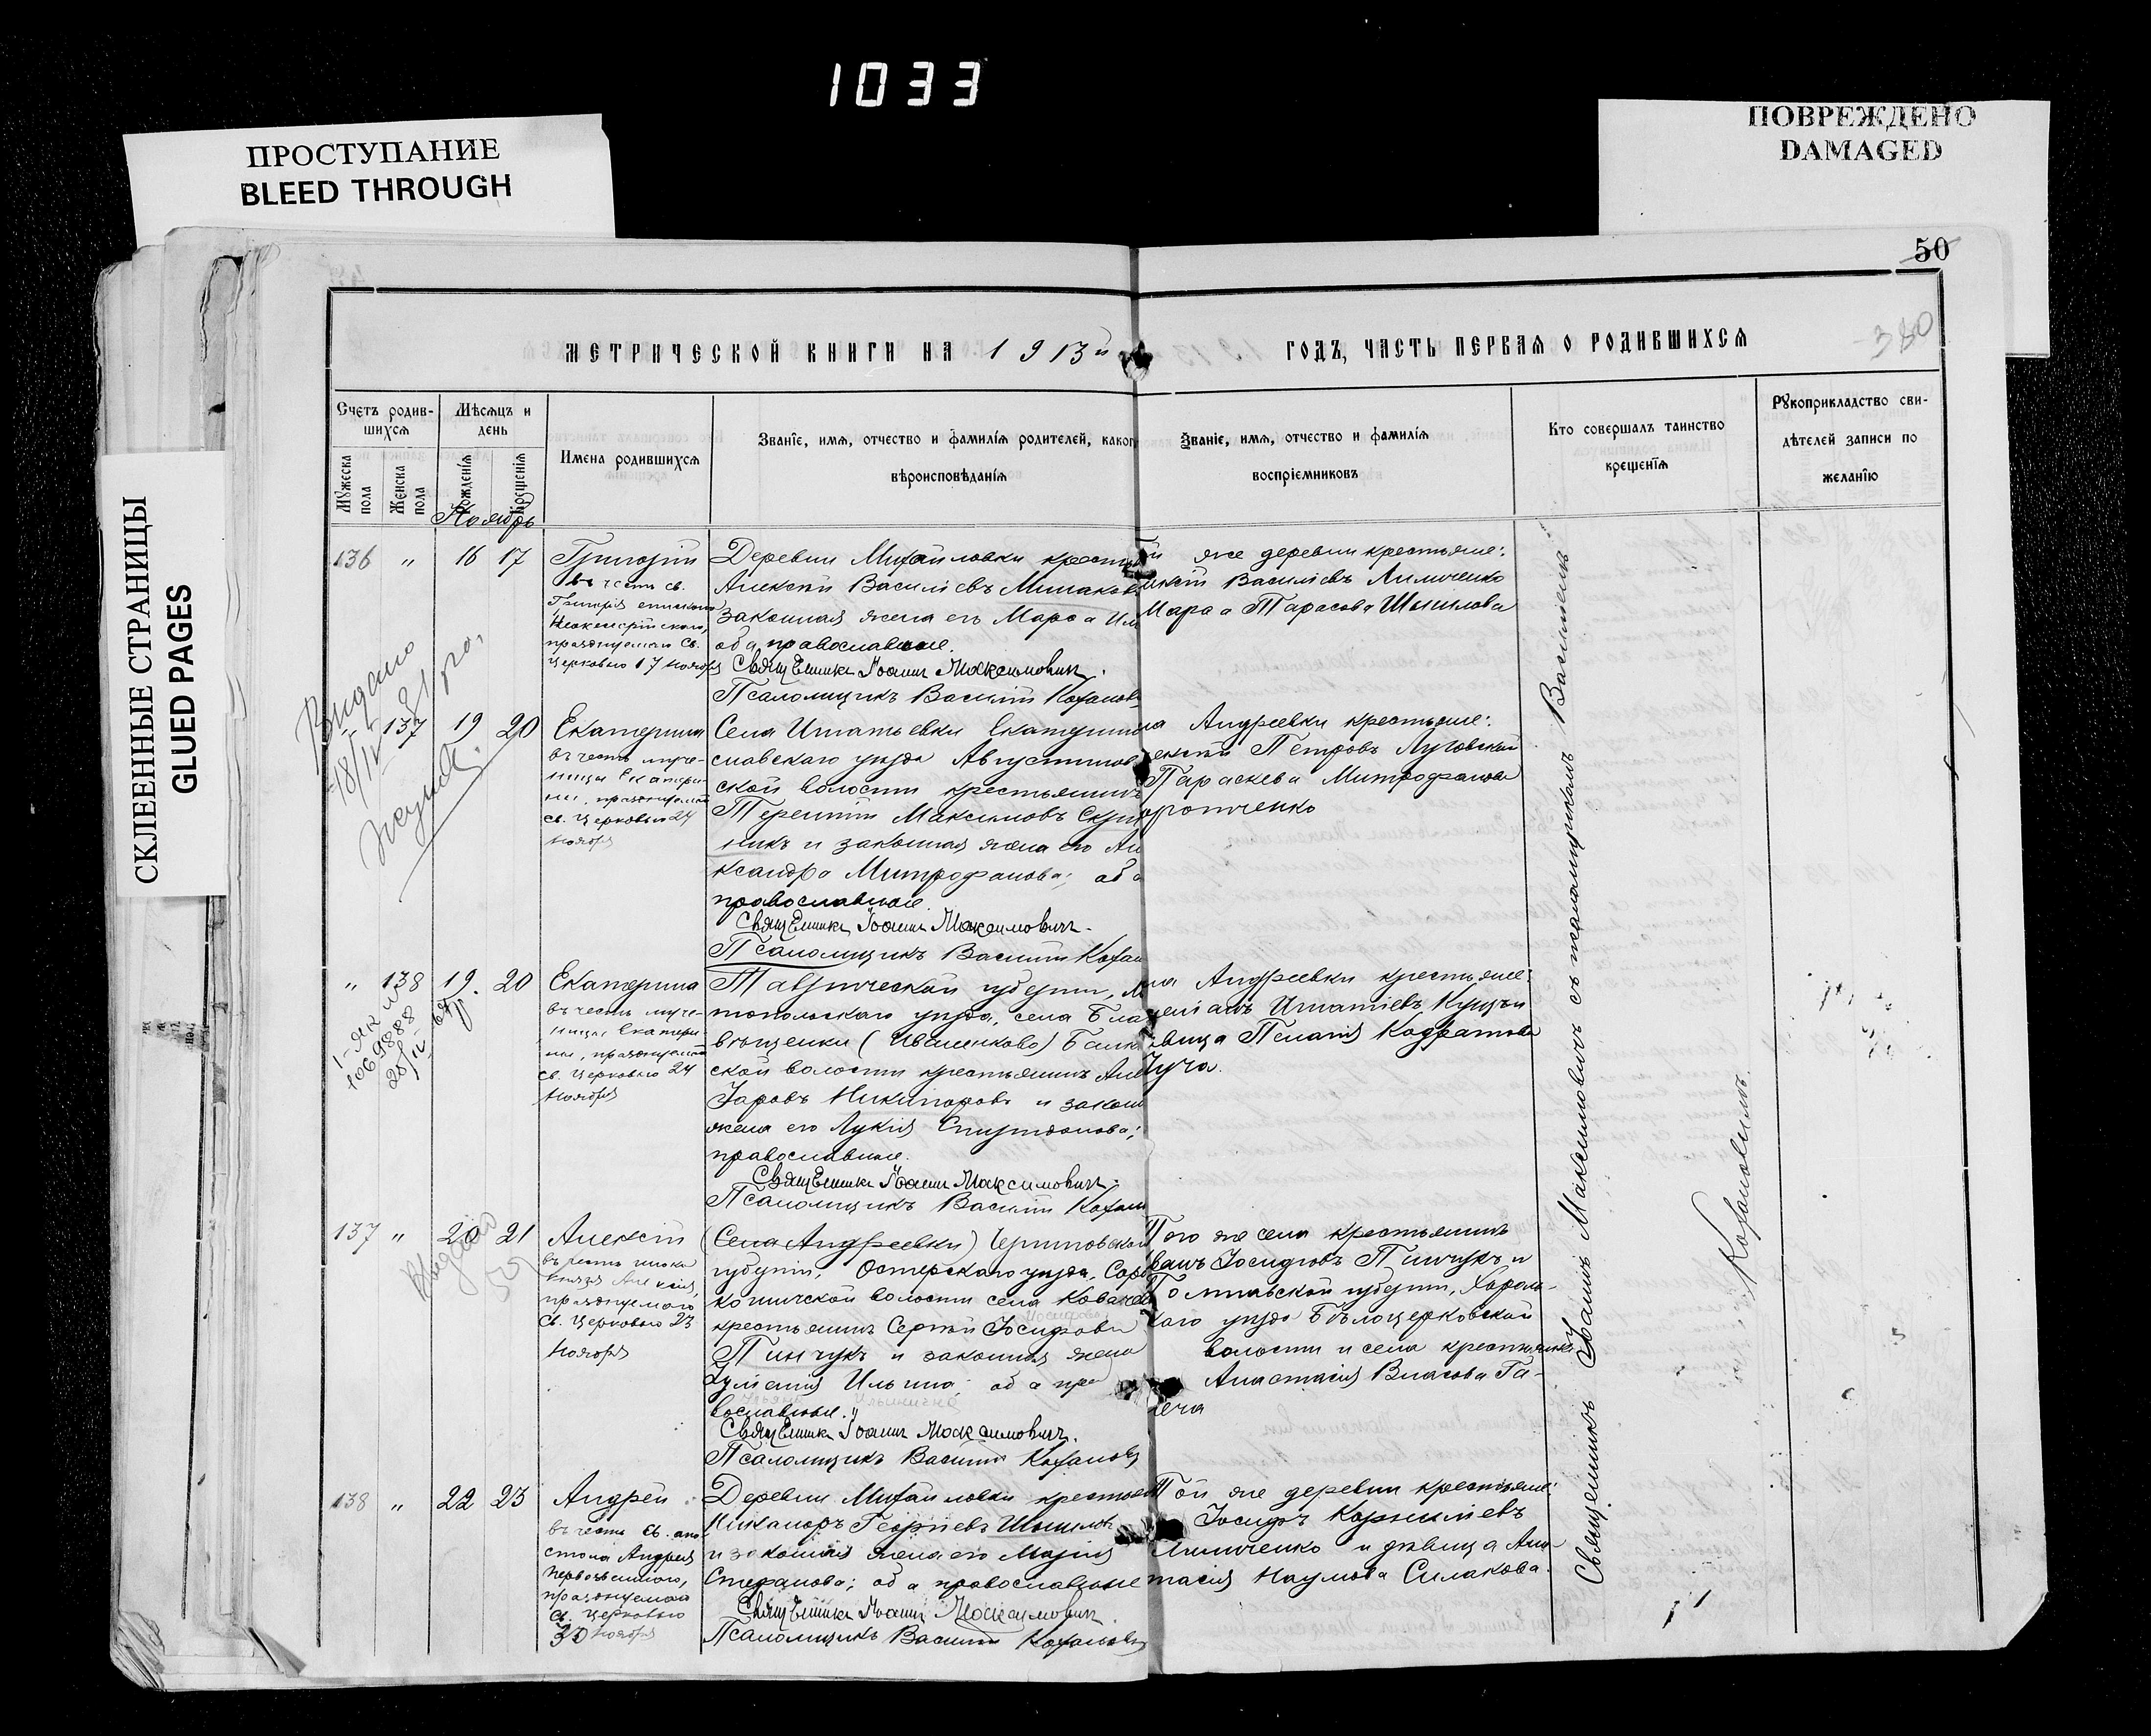 1033
ПРОСТУПАНИЕ
BLEED THROUGH
ПОВРЕЖДЕНО
DAMAGED
СКЛЕЕННЫЕ СТРАНИЦЫ
GLUED PAGES
50
380
МЕТРИЧЕСКОЙ КНИГИ НА 1913й
ГОДЪ, ЧАСТЬ ПЕРВАЯ О РОДИВШИХСЯ
Счетъ родив-
шихся
Мужеска
пола
Женска
пола
Мѣсяцъ и
день
Рожденія
Крещенія
Имена родившихся
Званіе, имя, отчество и фамилія родителей, каког
вѣроисповѣданія
Званіе, имя, отчество и фамилія
воспріемниковъ
Кто совершалъ таинство
крещенія
Рукоприкладство сви-
дѣтелей записи по
желанію
Ноябрь
136 " 16 17
Григорій
въ честь св.
Григорія епископа
Неокесарійскаго,
празднуемаго Св.
Церковью 17 ноября
Деревни Михайловки крестья
Алексѣй Василіевъ
законная жена его Марѳа
оба православные.
Священникъ Іоаннъ Максимовичъ.
Псаломщикъ Василій Кохановъ
же деревни крестьяне:
Василіевъ Липченко
Марѳа Тарасова Шипилова
Видано
18/IV
" 137 19 20
Екатерина
въ честь муче-
ницы Екатери-
ны, празднуемой
св. Церковью 24
ноября
Села Игнатьевки Екатерино
славскаго уѣзда Августинов
ской волости крестьянинъ
Терентій Максимовъ
никъ и законная жена его Ал
ксандра Митрофанова; оба
православные.
Священникъ Іоаннъ Максимовичъ.
Псаломщикъ Василій Кохан
ла Андреевки крестьяне:
Петровъ Луговской
Параскева Митрофанова
оротченко
" 138 19. 20
1069888
Екатерина
въ честь муче-
ницы Екатери-
ны, празднуемой
св. Церковью 24
ноября
Таврической губерніи, М
топольскаго уѣзда, села Бла
вѣщенки (Иваненково) Балк
ской волости крестьянинъ
Никифоровъ и закон
жена его Лукія Спиридонова;
православные.
Священникъ Іоаннъ Максимовичъ.
Псаломщикъ Василій Кохан
ла Андреевки крестьяне:
Игнатіевъ Куцый
ѣвица Пелагія Кодратова
137 " 20 21
Алексѣй
въ честь
князя Алексія,
празднуемаго
Св. Церковью 23
ноября
(Села Андреевки) Черниговской
губерніи, Остерскаго уѣзда,
кошичской волости села
крестьянинъ Сергѣй Іосифовъ
Пинчукъ и законная жена
Ильина; оба пра
вославные.
Священникъ Іоаннъ Максимовичъ.
Псаломщикъ Василій Кохановъ
Того же села крестьянинъ
ванъ Іосифовъ Пинчукъ и
Полтавской губерніи, Хороль-
каго уѣзда Бѣлоцерковской
волости и села крестьянка
Анастасія Власова Га-
138 " 22 23
Андрей
въ честь св. апо-
стола Андрея
Первозваннаго,
празднуемаго
св. Церковью
30 ноября
Деревни Михайловки крестьян
Никаноръ Георгіевъ Шипиловъ
и законная жена его Марія
Стефанова; оба православные
Священникъ Іоаннъ Максимовичъ.
Псаломщикъ Василій Кохановъ
Той же деревни крестьяне:
Іосифъ Корниліевъ
Липченко и дѣвица Ана-
тасія Наумова Силакова.
Священникъ Іоаннъ Максимовичъ съ псаломщикомъ Василіемъ
Кохановымъ.